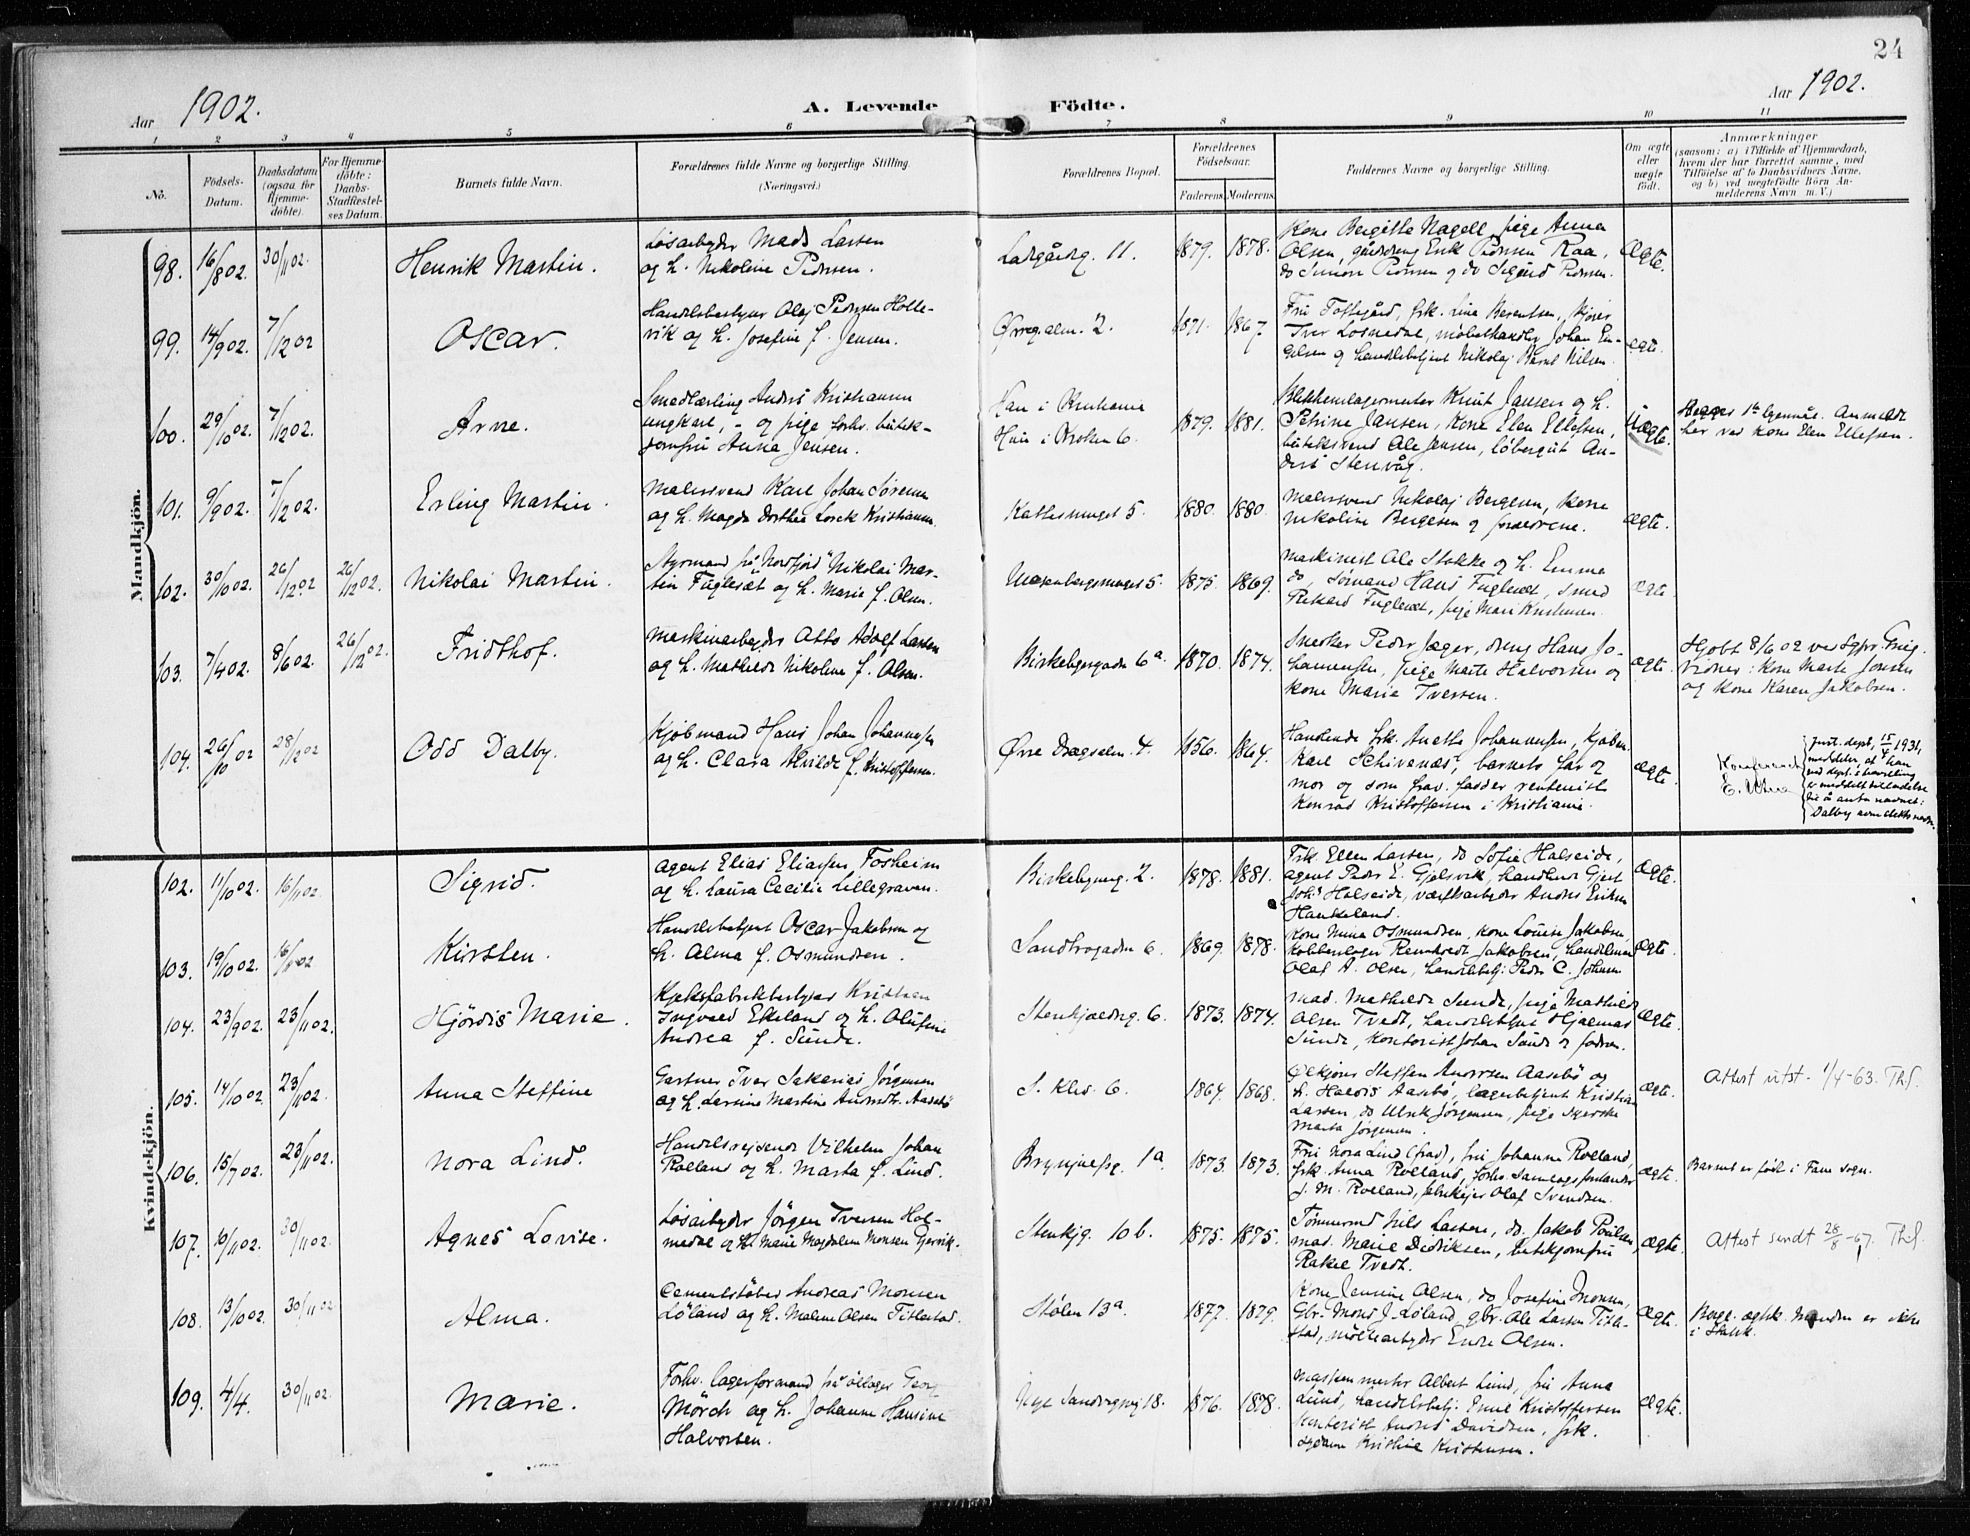 24
Aar 1902.
A. Levende Födte.
Aar 1902.
1 2 3 4 5 6 7 8 9 10 11
No.
Födsels-
Datum.
Daabsdatum
(ogsaa for
Hjemme-
döbte).
For Hjemme-
döbte:
Daabs-
Stadfæstel-
ses Datum.
Barnets fulde Navn.
Forældrenes fulde Navne og borgerlige Stilling.
(Næringsvei.)
Forældrenes Bopæl.
Forældrenes
Födselsaar.
Faderens Moderens
Faddernes Navne og borgerlige Stilling.
Om ægte
eller
uægte
födt.
Anmærkninger
(saasom: a) i Tilfælde af Hjemmedaab,
hvem der har forrettet samme, med
Tilföielse af to Daabsvidners Navne,
og b) ved uægtefödte Börn An-
melderens Navn m. V.)
Mandkjön.
98. 16/8 02. 30/11 02. Henrik Martin.
Løsarbejder Mads Larsen
og h. Nikoline Pedersen.
Ladgårdsg. 11. 1879. 1878.
Kone Bergitte Nagell, pige Anna
Olsen, gårddreng Erik Pedersen Raa,
do Simon Pedersen og do Sigurd Pedersen.
Ægte.
99. 14/9 02. 7/12 02 Oscar.
Handelsbestyrer Olaj Pedersen Holle-
vik og h. Josefine f. Jensen.
Øvreg.alm. 2. 1871. 1867.
Fru Toftegård, frk. Lina Berentsen, kjører
Iver Losnedal, møbelhandler Johan En-
gelsen og handelsbetjent Nikolaj Nilsen.
ægte.
100. 29/10 02. 7/12 02. Arne.
Smedlærling Anders Kristiansen
ungkarl, - og pige forhv. butik-
jomfru Anna Jensen.
Han i
Hun i Kroken 6. 1879. 1881.
Knut Jansen og h.
Petrine Jansen, kone Elen Ellefsen,
Ole Jensen, løbergut An-
ders Stenvåg.
Uægte.
Begges 1ste lejermål. Anmeldt
her ved kone Elen Ellefsen.
101. 9/9 02. 7/12 02. Erling Martin.
Malersvend Karl Johan Sørensen
og h. Magda Dorthea Lorck Kristiansen.
Kattesmuget 5. 1880. 1880.
Malersvend Nikolaj Bergesen, kone
Nikoline Bergesen og forældrene.
Ægte.
102. 30/10 02. 26/12 02 26/12 02. Nikolai Martin.
Styrmand på "Nordfjord" Nikolai Mar-
tin Fuglesæt og h. Marie f. Olsen.
5. 1875. 1869.
Maskinist Ole Stokke og h. Emma
do, sømand Hans Fuglesæt, smed
Rikard Fuglesæt, pige Mari Kristiansen.
Ægte
103. 7/4 02. 8/6 02. 26/12 02. Fridthof.
Maskinarbejder Otto Adolf Larsen
og h. Mathilde Nikoline f. Olsen.
Birkebejnergaden 6a. 1870. 1874.
Snekker Peder Jæger, dreng Hans Jo-
hannessen, pige Marte Halvorsen og
kone Marie Iversen.
ægte.
Hjdbt 8/6 02 ved
Vidner: kone Marte Jensen
og kone Karen Jakobsen.
104. 26/10 02 28/12 02 Odd Dalby.
Kjøbmand Hans Johan Johannessen
og h. Clara Alvilde f. Kristoffersen.
Øvre Dregsalm. 4. 1856. 1864.
Handlende frk. Anethe Johannessen, kjøbm.
Karl Schivenæs, barnets far og
mor og som frav. fadder rentenist
Konrad Kristoffersen i Kristiania.
ægte.
Just. dept. 15/4 1931,
meddeler, at han
ved dept.s bevilling
er meddelt tilladelse
til å anta navnet:
Dalby som slektsnavn.
Kvindekjön.
102. 11/10 02. 16/11 02. Sigrid.
Agent Elias Eliassen Fosheim
og h. Laura Cecilie Lillegraven.
Birkebejnerg. 2. 1878. 1881.
Frk. Ellen Larsen, do Sofie Halseide,
agent Peder E. Gjelsvik, handlende Gjert
Johs Halseide, værftsarbejder Anders Eriksen
Haukeland.
Ægte.
103. 19/10 02. 16/11 02 Kirsten.
Handelsbetjent Oscar Jakobsen og
h. Alma f. Osmundsen.
Sandbrogaden 6. 1869. 1878.
Kone Nina Osmundsen, kone Lovise Jakobsen,
Reinhardt Jakobsen,
Olaf A. Olsen, handelsbetj. Peder C. Johnsen
Ægte.
104. 23/9 02. 23/11 02. Hjördis Marie.
Kjeksfabrikbestyrer Kristian
Ingvald Ekeland og h. Olufine
Andrea f. Sunde.
Stenkjeldrg. 6. 1873. 1874.
Mad. Mathilde Sunde, pige Mathilde
Olsen Tvedt, handelsbetjent Hjalmar
Sunde, kontorist Johan Sunde og faderen.
Ægte.
105. 14/10 02. 23/11 02. Anna Steffine
Gartner Iver Sakarias Jørgensen
og h. Larsine Martine Andersdtr. Aasebø
S. Klev. 6. 1864. 1868.
Ølkjører Steffen Andersen Aasebø og
h. Haldis Aasebø, lagerbetjent Kristian
Larsen, do Ulrik Jørgensen, pige
Marta Jørgensen.
ægte.
Attest utst. 1/4-63. Thf.
106. 15/7 02. 23/11 02. Nora Lind.
Handelsrejsende Vilhelm Johan
Rolland og h. Marta f. Lind.
Brynjulfsg. 1a. 1873. 1873.
Fru Nora Lind (frav), fru Johanne Rolland,
frk. Anna Rolland, forhv. Samlagsforstander
J. M. Rolland, fabrikejer Olaf Svendsen.
ægte.
Barnet er født i Fane sogn.
107. 10/11 02. 30/11 02. Agnes Lovise.
Løsarbejder Jörgen Iversen Hol-
medal og h. Marie Magdalene Monsen Gjervik.
Stenkjg. 10b. 1875. 1875.
Tømmermd Nils Larsen, do. Jakob Poulsen,
mad. Marie Didriksen, butikjomfru
Rakel Tvedt.
Ægte.
Attest sendt 28/8-67. Thf.
108. 13/10 02. 30/11 02 Alma.
Cementstøber Andreas Monsen
Løland og h. Malene Olsen Titlestad.
Stølen 13a. 1877. 1879.
Kone Jensine Olsen, do Josefine Monsen,
Gbr. Mons J. Løland, gbr. Ole Larsen Title-
stad, møllearbejder Endre Olsen.
Ægte.
Borgl. ægtsk. Manden er ikke
i Statsk.
109. 4/4. 30/11 02. Marie.
Forhv. lagerformand på øllager Georg
Mörch og h. Johanne Hansine
Halvorsen.
Nye Sandvigsvej 18. 1876. 1878.
Maskinmester Albert Lund, fru Anna
Lund, handelsbetj. Emil Kristoffersen
kontorist Anders Davidsen, frk.
Kristine Kristensen.
Ægte.